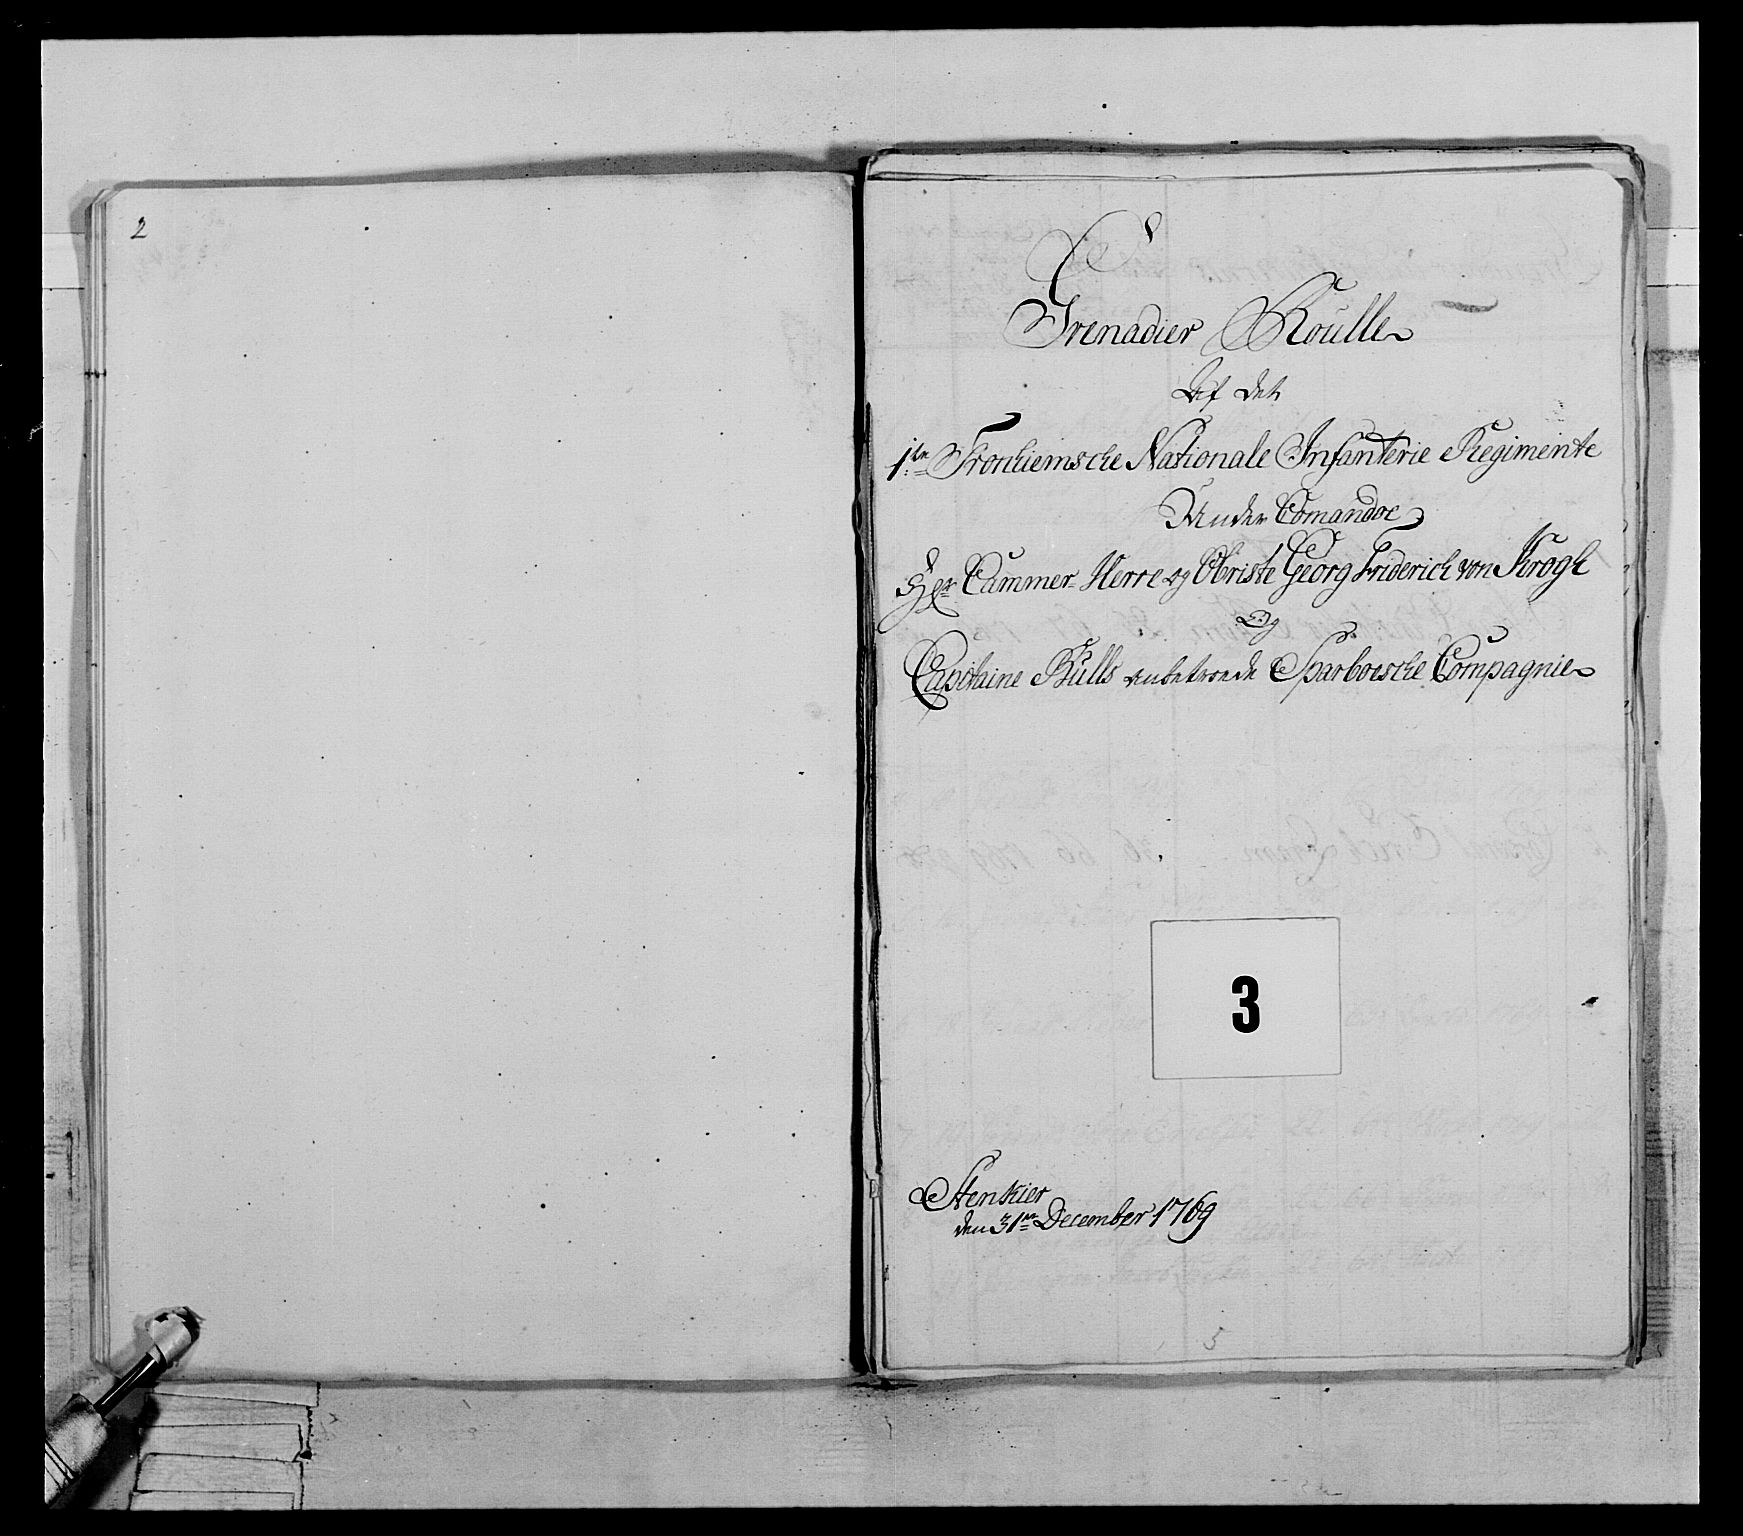 2
Grenadier Roulle
Af det
1te Tronhiemsche Nationale Infanterie Regimente
Under Comandoe
Hr Cammer Herre og Obriste Georg Friderich von Krogh
Og
Capitaine Bülls anbetroede Sparboesche Compagnie
3
Stenkier
den 31te December 1769
5